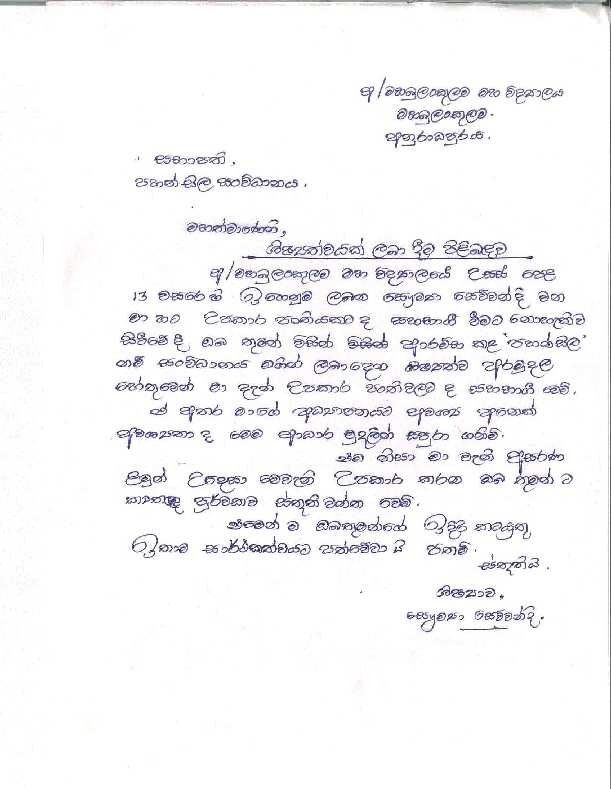 අ/මහබුලංකුලම මහ විද්‍යාලය
මහබුලංකුලම.
අනුරාධපුරය.
සභාපති,
පහන්සිල සංවිධානය.
මහත්මාණෙනි,
ශිෂ්‍යත්වයක් ලබා දීම පිළිබඳව
අ/මහබුලංකුලම මහ විද්‍යාලයේ උසස් පෙළ
13 වසරෙහි ඉගෙනුම ලබන සෞම්‍යා සෙව්වන්දි වන
මා හට උපකාර පංතියකට ද සහභාගී වීමට නොහැකිව
සිටියේදී ඔබ තුමන් විසින් ආරම්භ කළ 'පහන්සිල'
නම් සංවිධානය මගින් ලබාදෙන ශිෂ්‍යත්ව අරමුදල
හේතුවෙන් මා දැන් උපකාර පංතිවලට ද සහභාගී වෙමි.
ඒ අතර මාගේ අධ්‍යාපනයට අවශ්‍ය අනෙක්
අවශ්‍යතා ද මෙම ආධාර මුදලින් සපුරා ගනිමි.
එම නිසා මා වැනි අසරණ
ළමුන් උදෙසා මෙවැනි උපකාර කරන ඔබ තුමන් ට
පූර්වකව ස්තුති වන්ත වෙමි.
එමෙන් ම ඔබතුමන්ගේ ඉදිරි කටයුතු
ඉතාම සාර්ථකත්වයට පත්වේවා යි පතමි.
ස්තුතියි.
ශිෂ්‍යාව,
සෞම්‍යා සෙව්වන්දි.